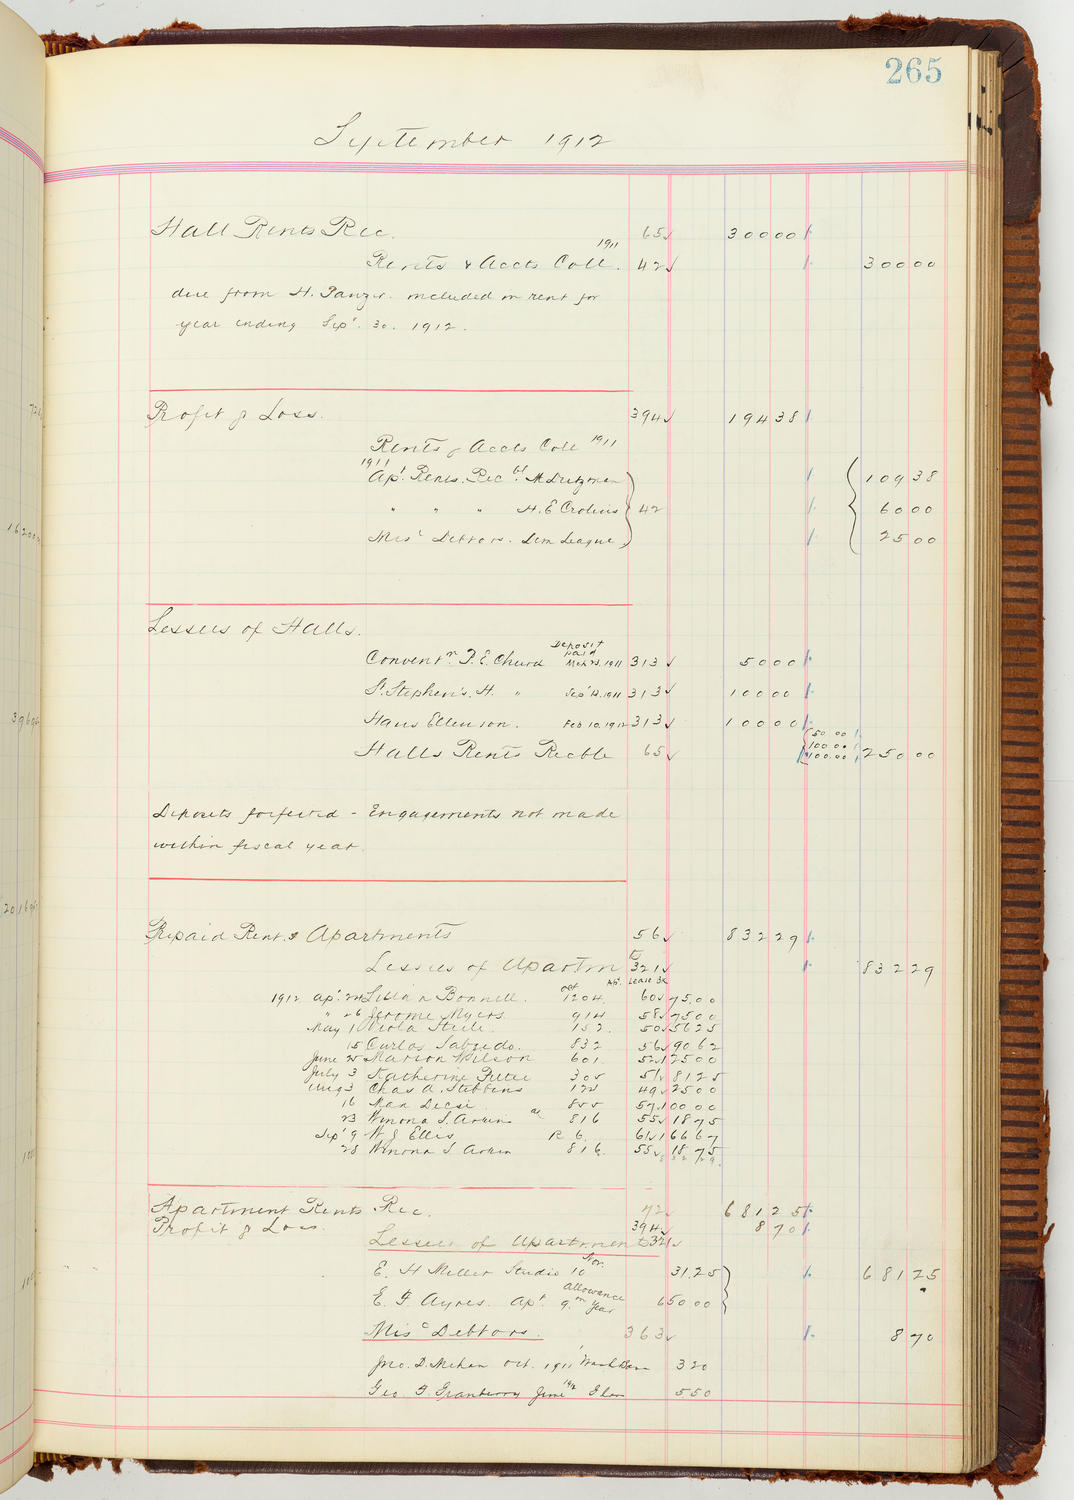 265
September 1912
Hall Rents Rec. 65 300 00
1911
Rents & Accts Coll. 42 300 00
due from H. included in rent for
year ending Sep't. 30. 1912.
Profit & Loss. 394 194 38
Rents & Accts Coll 1911
1911
Ap't Rents. Rec 109 38
" " " H. E. 42 60 00
Misc Debtors. Dem League 25 00
Lessees of Halls.
Deposit
paid
Convent'n. P. E. Church Mch 23. 1911 313 50 00
St. Stephen's. H. " Sep't 12. 1911 313 100 00
Hans Ellenson. Feb 10. 1912 313 100 00
50 00
100 00
Halls Rents Recble 65 100.00 250 00
Deposits forfeited - Engagements not made
within fiscal year.
Repaid Rents Apartments 56 832 29
Lessees of Apartm 321 832 29
Apt. Lease Bk
1912 Ap'l 24 Lillian Bonnell. 1204. 60 75.00
" 26 Jerome Myers. 914 58 75 00
May 1 Viola Steele. 152. 50 56 25
15 Carlos Salzedo. 832 56 90 62
June 25 Marion Wilson 601 52 125 00
July 3 Katherine 305 51 81 25
Aug 3 Chas A. Stebbins 122 49 25 00
16 Max Decsi 855 57 100 00
23 Winona S. 816 55 18 75
Sep't 9 W J Ellis R 6. 61 166 67
28 Winona S 816. 55 18 75
832 29
Apartment Rents Rec. 72 681 25
Profit & Loss. 394 8 70
Lessees of Apartments 321
E. H Miller Studio 10 Nov. 31.25 681 25
E. F. Ayres. Ap't 9. allowance on year 650 00
Misc Debtors. 363 8 70
Jno. D. Mehan Oct. 1911 3 20
Geo. F. Granberry June 1912 5 50